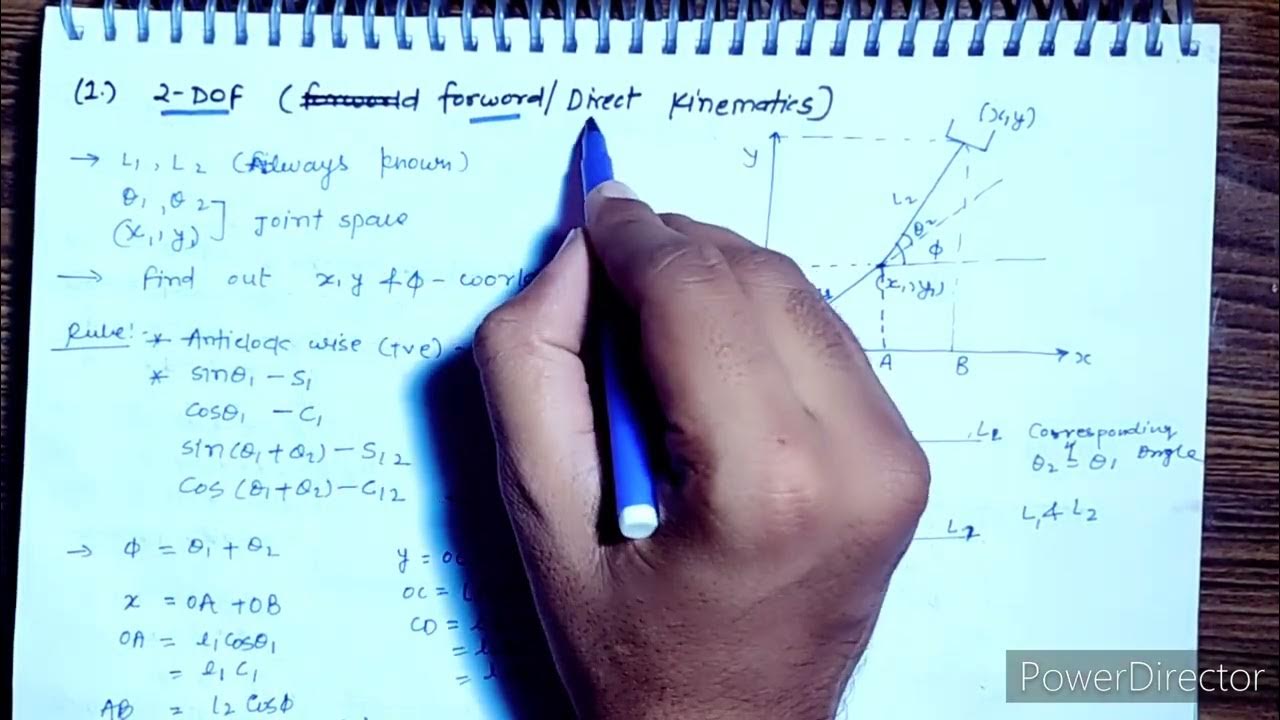 (1.) 2-DOF (forword forword/Direct Kinematics)
→ L1, L2 (Always known)
θ1, θ2
(x1, y1) ] Joint space
→ find out x, y & φ -
Rule:- * Anticlock wise (+ve)
* sinθ1 - S1
cosθ1 - C1
sin(θ1+θ2) - S12
cos(θ1+θ2) - C12
→ φ = θ1 + θ2
x = OA + OB
OA = l1 cosθ1
= l1 C1
AB = l2 cosφ
y =
OC =
CD =
=
=
(x, y)
y
L2
θ2
φ
(x1, y1)
A
B
x
L2 Corresponding
θ2 = θ1 angle
L2
L1 & L2
PowerDirector